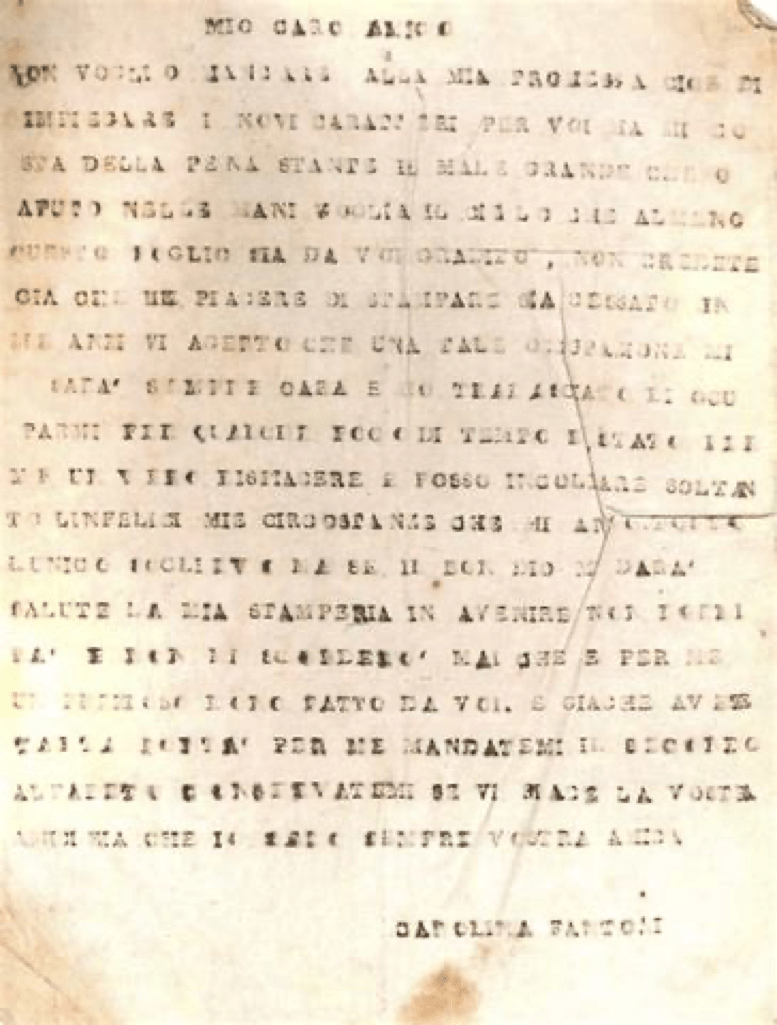 MIO CARO AMICO
NON VOGLIO MANCARE ALLA MIA PROMESSA CIOE DI
IMPIEGARE I NOVI CARATTERI PER VOI MA MI CO
STA DELLA PENA STANTE IL MALE GRANDE CHE O
AVUTO NELLE MANI VOGLIA IL CIELO CHE ALMENO
QUESTO FOGLIO SIA DA VOI GRADITO, NON CREDETE
GIA CHE IL PIACERE DI STAMPARE SIA CESSATO IN
ME ANZI VI ACETTO CHE UNA TALE OCUPAZIONE MI
SARA' SEMPRE CARA E SO TRALASCATO DI OCU
PARMI PER QUALCHE POCO DI TEMPO E STATO PER
ME UN VERO DISPIACERE E POSSO INCOLPARE SOLTAN
TO LINFELICI MIE CIRCOSTANZE CHE MI AN
LUNICO SOGLIEVO MA SE IL BON DIO MI DARA'
SALUTE LA MIA STAMPERIA IN AVENIRE NON
RA' E NON MI SCORDERO' MAI CHE E PER ME
UN PREZIOSO DONO FATTO DA VOI. E GIACHE AVETE
TALTA BONTA' PER ME MANDATEMI IL SECONDO
ALFABETO CONSERVATEMI SE VI PIACE LA VOSTRA
AMICIZIA CHE IO SARO SEMPRE VOSTRA AMICA
CAROLINA FANTONI